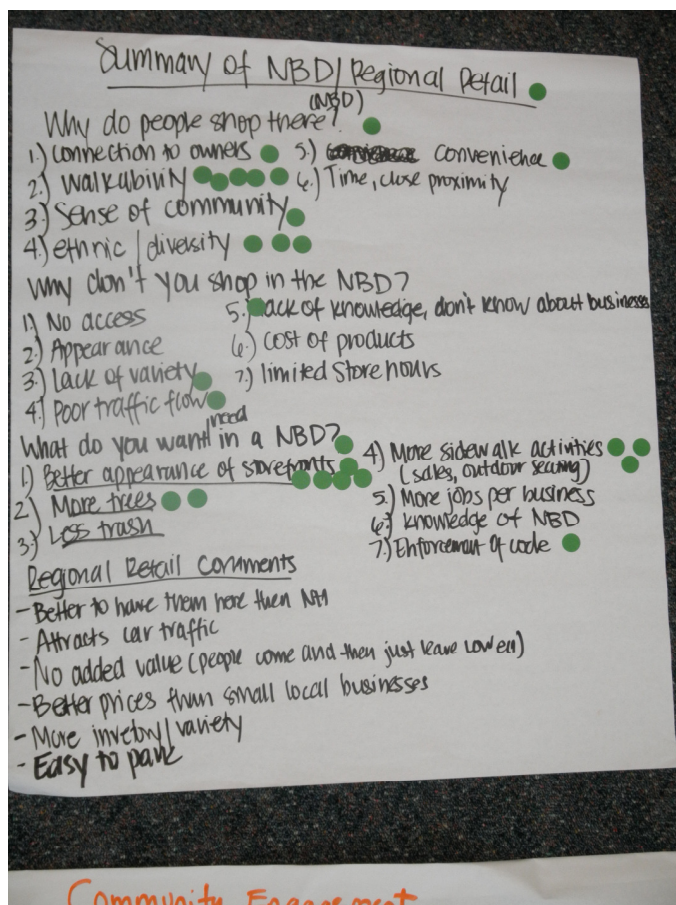 Summary of NBD/Regional Retail
(NBD)
Why do people shop there?
1.) connection to owners
2.) walkability
3.) Sense of community
4.) ethnic/diversity
5.) convenience
6.) Time, close proximity
Why don't you shop in the NBD?
1.) No access
2.) Appearance
3.) Lack of variety
4.) Poor traffic flow
5.) lack of knowledge, don't know about businesses
6.) cost of products
7.) limited store hours
What do you want/need in a NBD?
1.) Better appearance of storefronts
2.) More trees
3.) Less trash
4.) More sidewalk activities
(sales, outdoor seating)
5.) More jobs per business
6.) knowledge of NBD
7.) Enforcement of code
Regional Retail Comments
- Better to have them here then
- Attracts car traffic
- No added value (people come and then just leave
- Better prices than small local businesses
- More invetory/variety
- Easy to park
Community Engagement